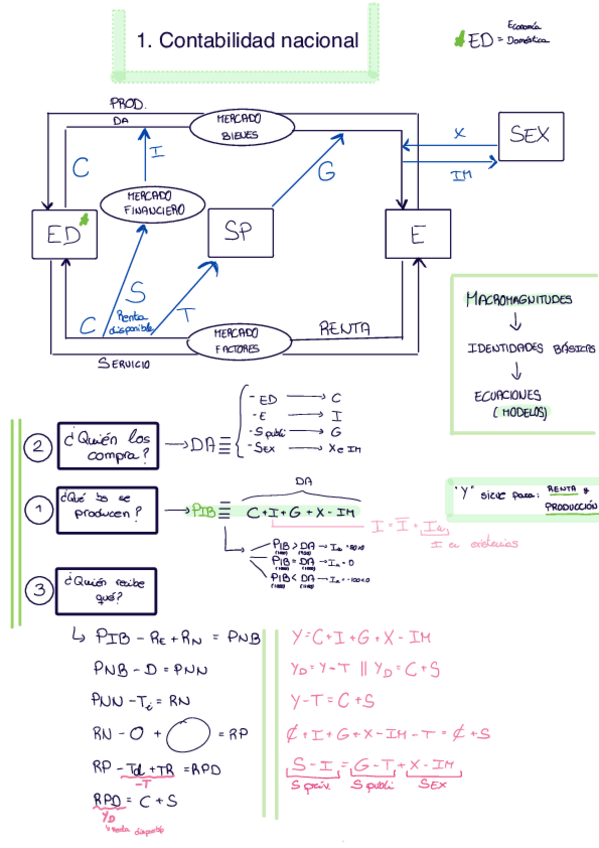 1. Contabilidad nacional
ED = Economía Doméstica
PROD.
DA
MERCADO BIENES
C
I
X
SEX
IM
G
MERCADO FINANCIERO
ED
SP
E
S
T
C
Renta disponible
MERCADO FACTORES
RENTA
SERVICIO
MACROMAGNITUDES
IDENTIDADES BÁSICAS
ECUACIONES
(MODELOS)
2 ¿Quién los compra? → DA ≡
- ED → C
- E → I
- S publi → G
- SEX → X e IM
DA
1 ¿Qué bs se producen? → PIB ≡ C + I + G + X - IM
"Y" sirve para: RENTA y PRODUCCIÓN
I = Ī + Ia
I en existencias
PIB > DA → Ia
PIB = DA → Ia = 0
PIB < DA → Ia = -100<0
3 ¿Quién recibe qué?
↳ PIB - RE + RN = PNB
PNB - D = PNN
PNN - Ti = RN
RN - O + = RP
RP - Td + TR = RPD
-T
RPD = C + S
YD
↳ Renta disponible
Y = C + I + G + X - IM
YD = Y - T || YD = C + S
Y - T = C + S
C + I + G + X - IM - T = C + S
S - I = G - T + X - IM
S priv. S publi SEX